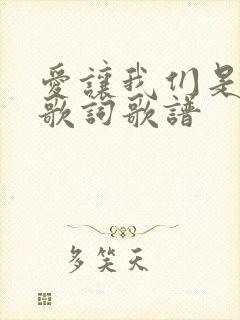 愛讓我们是
歌詞歌譜
多笑天